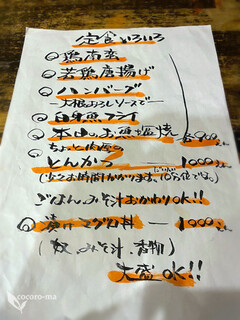 定食いろいろ
◎鶏南蛮
◎若鶏唐揚げ
◎ハンバーグ
ー大根おろしソースでー
◎白身フライ
◎本日のお魚塩焼
各900えん
ちょっと
とんかつ ー 1000えん
(お時間かかります。10分位
ごはん、みそ汁おかわりOK!!
◎漬けマグロ丼 ー 1000えん
(、みそ汁、香物)
大盛OK!!
cocoro-ma